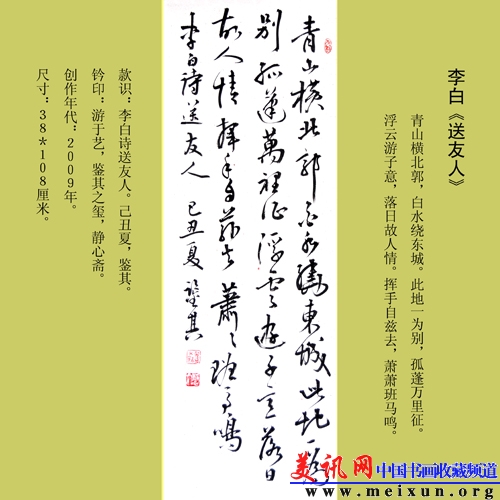 李白《送友人》
青山横北郭，白水绕东城。此地一为别，孤蓬万里征。
浮云游子意，落日故人情。挥手自兹去，萧萧班马鸣。
青山橫北郭白水繞東城此地一為
別孤蓬萬裡征浮雲遊子意落日
故人情揮手自茲去蕭々班馬鳴
李白诗送友人 己丑夏 鑒其
款识：李白诗送友人。己丑夏，鉴其。
钤印：游于艺，鉴其之玺，静心斋。
创作年代：2009年。
尺寸：38*108厘米。
美讯网 中国书画收藏频道
www.meixun.org